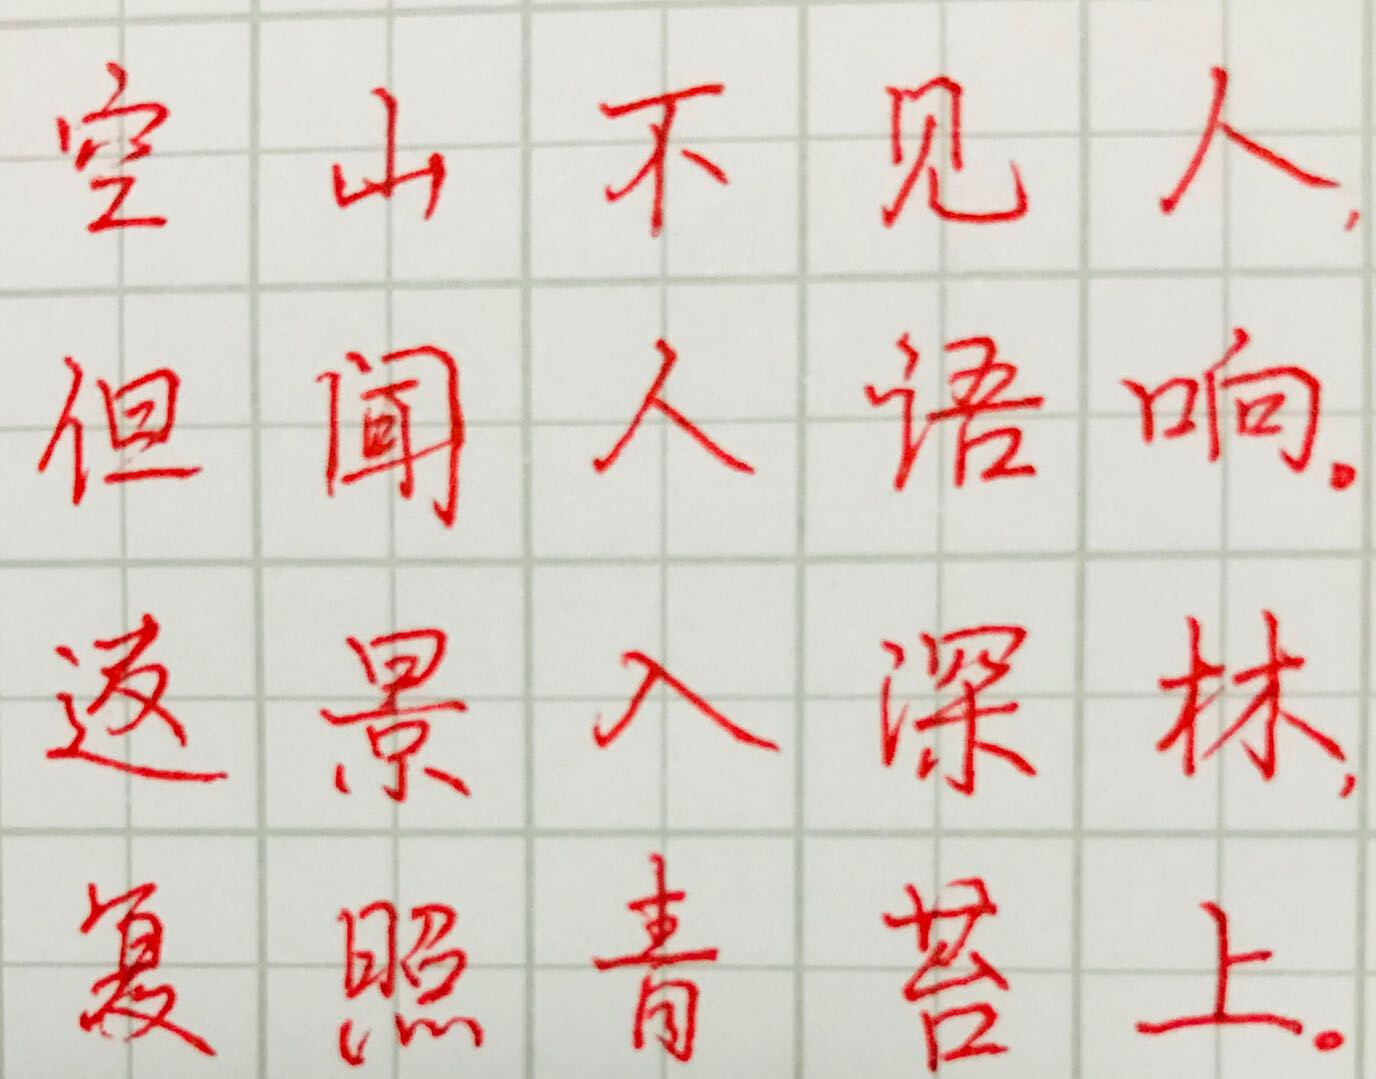 空山不见人,
但闻人语响。
返景入深林,
复照青苔上。